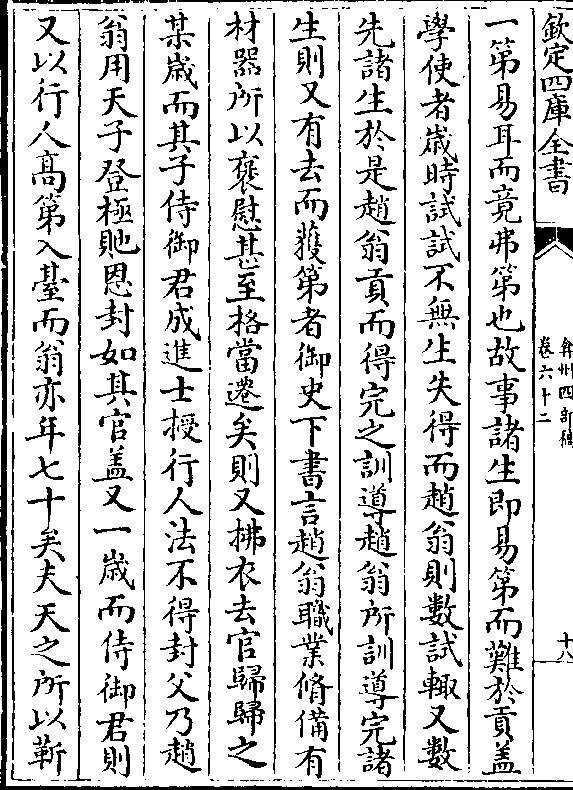 欽定四庫全書
弇州四部稿
卷六十二
十八
一第易耳而竟弗第也故事諸生即易第而難於貢蓋
學使者歲時試試不無生失得而趙翁則數試輒又數
先諸生於是趙翁貢而得完之訓導趙翁所訓導完諸
生則又有去而獲第者御史下書言趙翁職業脩備有
材器所以褒慰甚至格當遷矣則又拂衣去官歸歸之
某歲而其子侍御君成進士授行人法不得封父乃趙
翁用天子登極貤恩封如其官盖又一歲而侍御君則
又以行人高第入臺而翁亦年七十矣夫天之所以靳